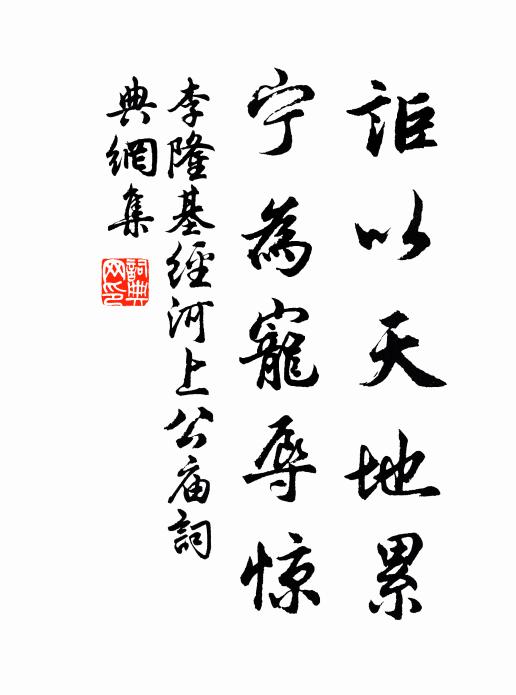 詎以天地累
宁為寵辱惊
李隆基經河上公庙詞
典網集
詞典
网印